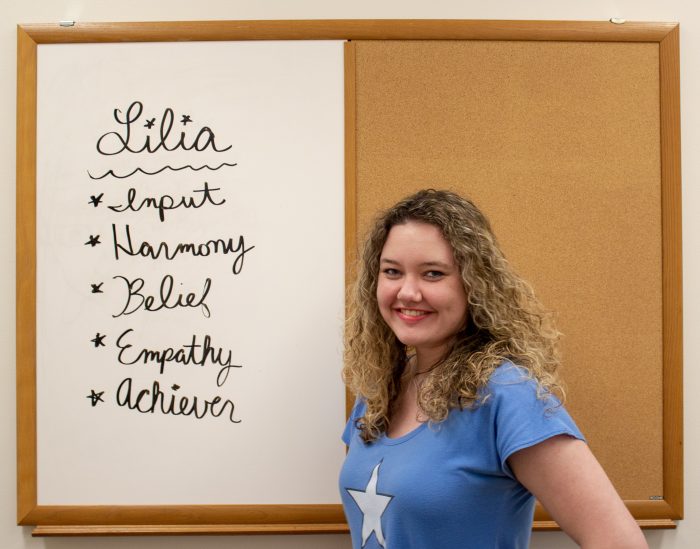 Lilia
* Input
* Harmony
* Belief
* Empathy
* Achiever